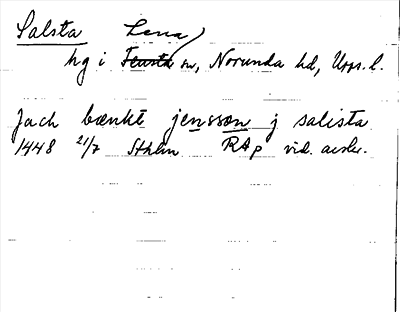 Salsta Lena
hg i Tensta sn, Norunda hd, Upps. l.
Jach bænkt jensson j salista
1448 21/7 Sthlm RAp vid. avskr.